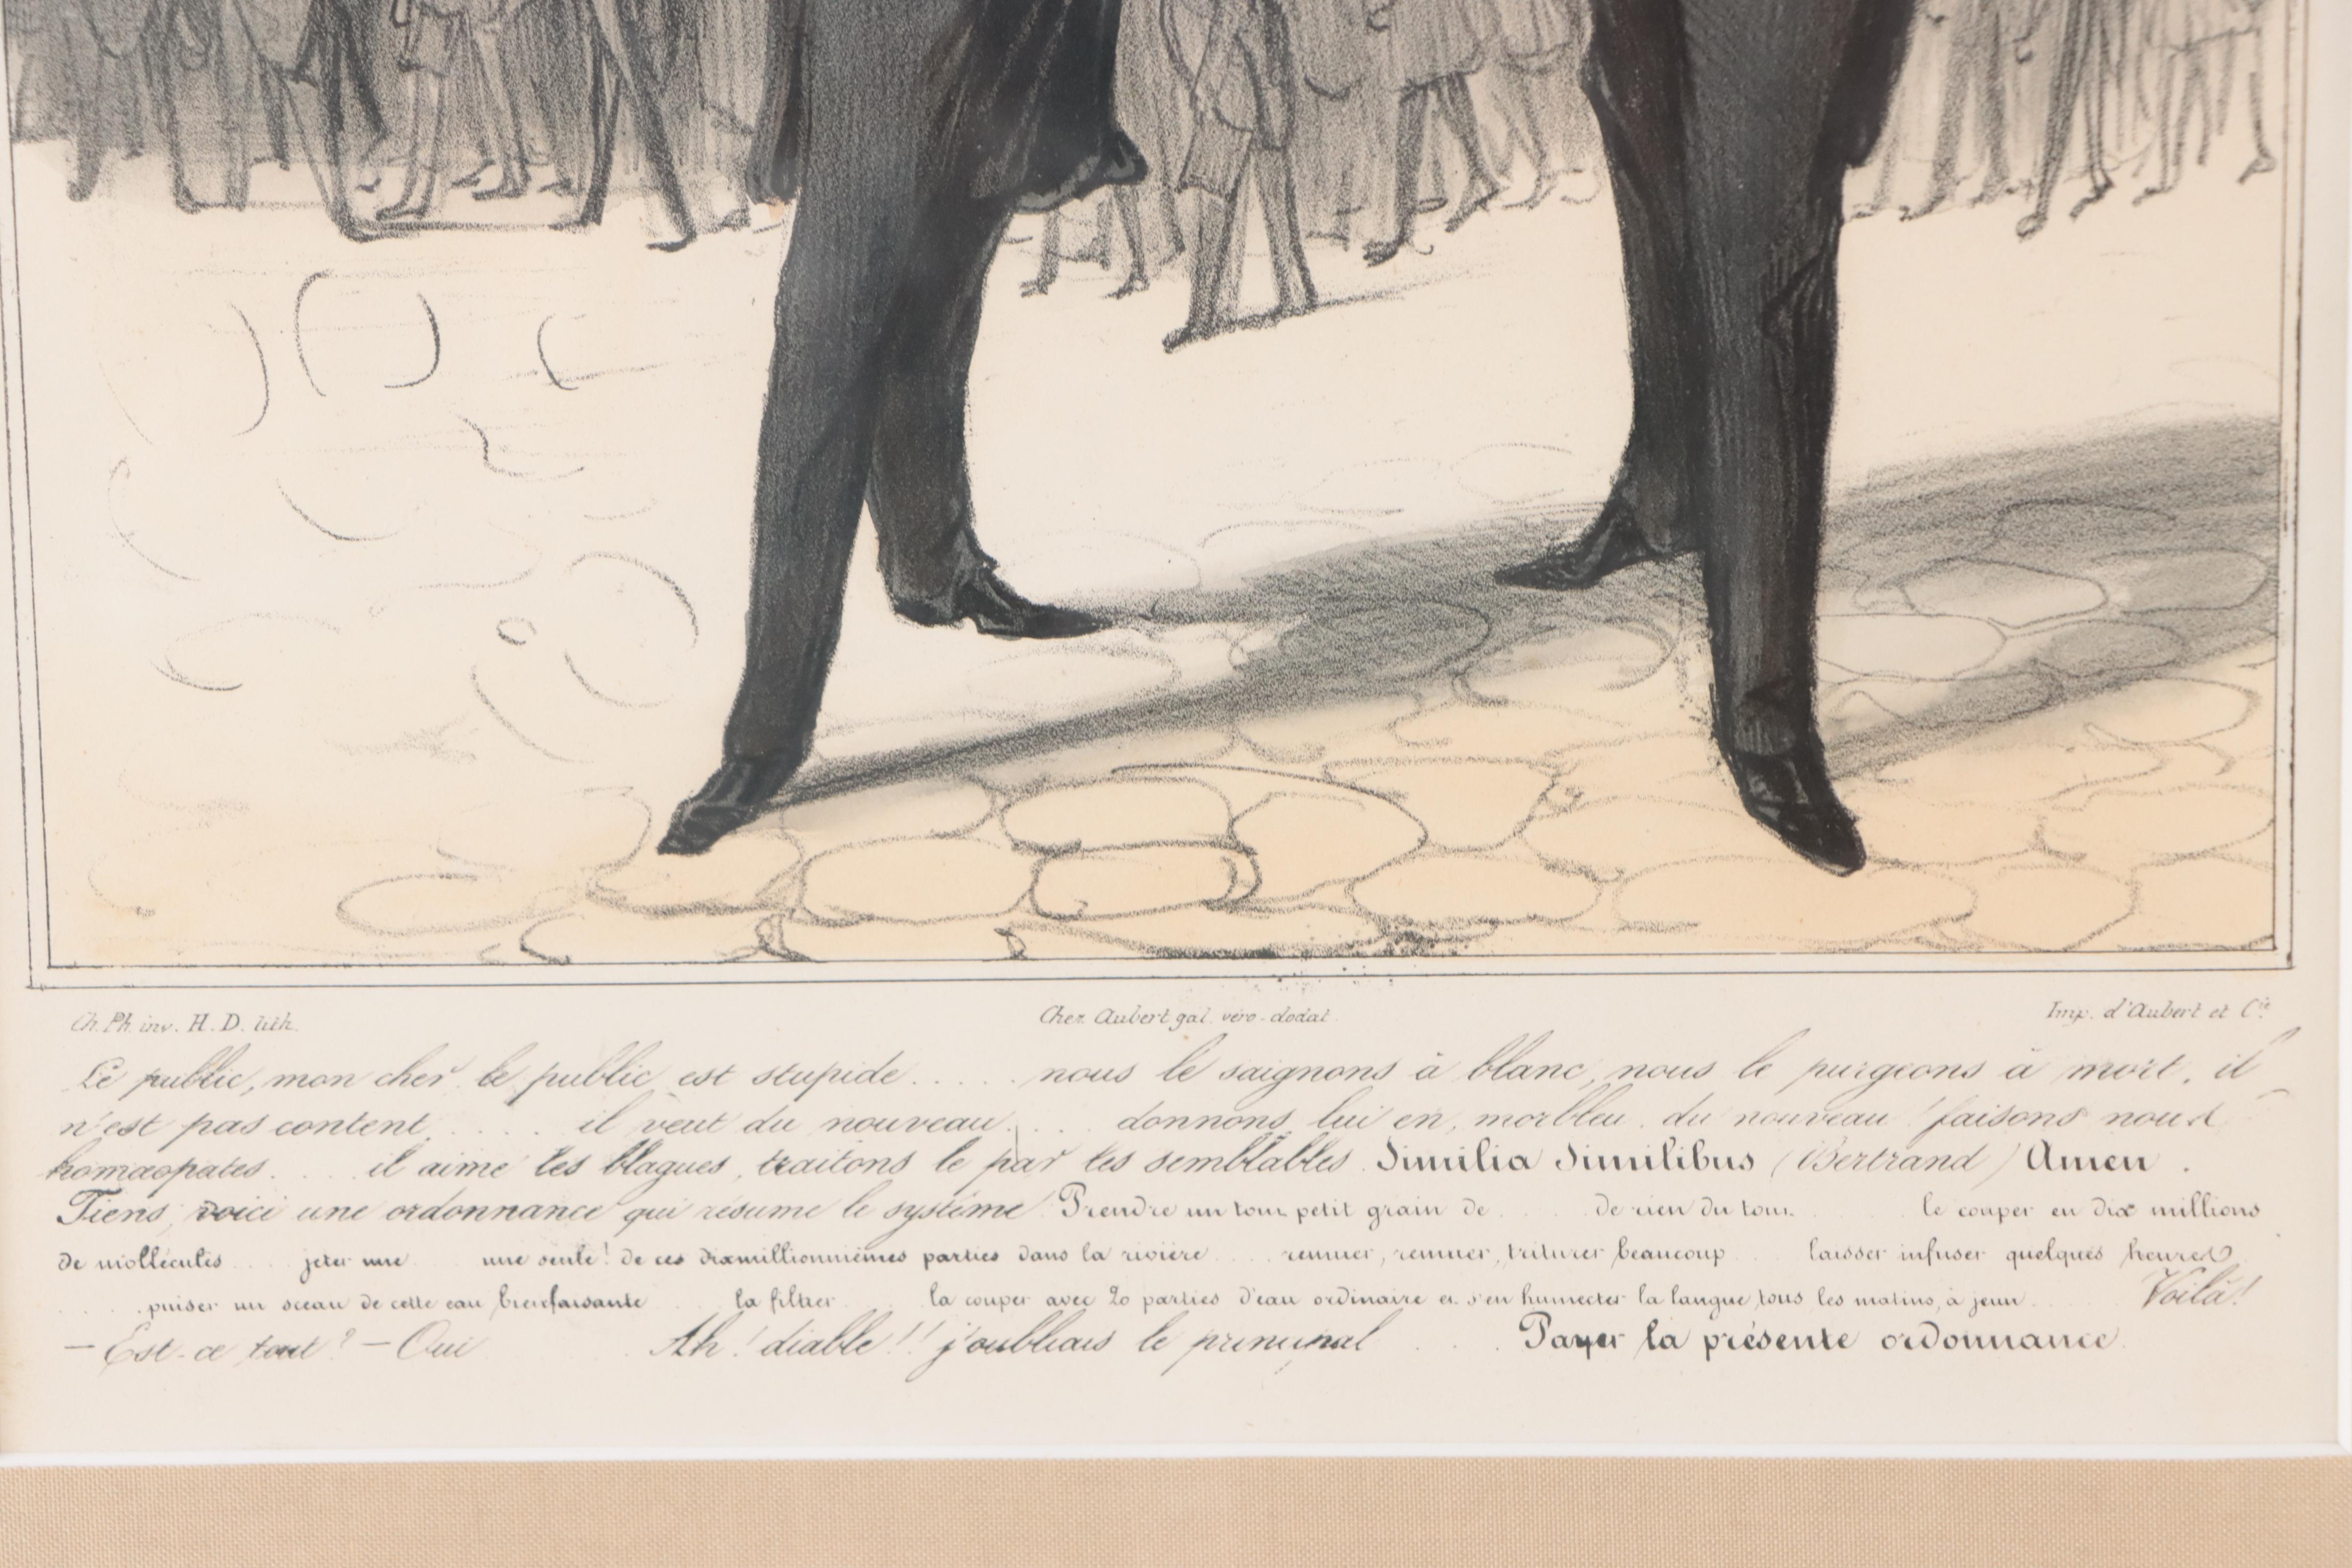 Ch. Ph. inv. H. D. lith.
Chez Aubert gal. véro-dodat.
Imp. d'Aubert et Cie.
Le public, mon cher le public est stupide..... nous le saignons à blanc, nous le purgeons à mort, il
n'est pas content..... il veut du nouveau.... donnons lui en, morbleu, du nouveau! faisons nous
homœopates.... il aime les blagues, traitons le par les semblables. Similia Similibus (Bertrand) Amen.
Tiens, voici une ordonnance qui résume le système. Prendre un tout petit grain de..... de rien du tout..... le couper en dix millions
de mollécules.... jeter une.... une seule! de ces dixmillionnièmes parties dans la rivière.... remuer, remuer, triturer beaucoup.... laisser infuser quelques heures
..... puiser un sceau de cette eau bienfaisante.... la filtrer..... la couper avec 20 parties d'eau ordinaire et s'en humecter la langue tous les matins, à jeun..... Voilà!
— Est-ce tout? — Oui..... Ah! diable!! j'oubliais le principal..... Payer la présente ordonnance.